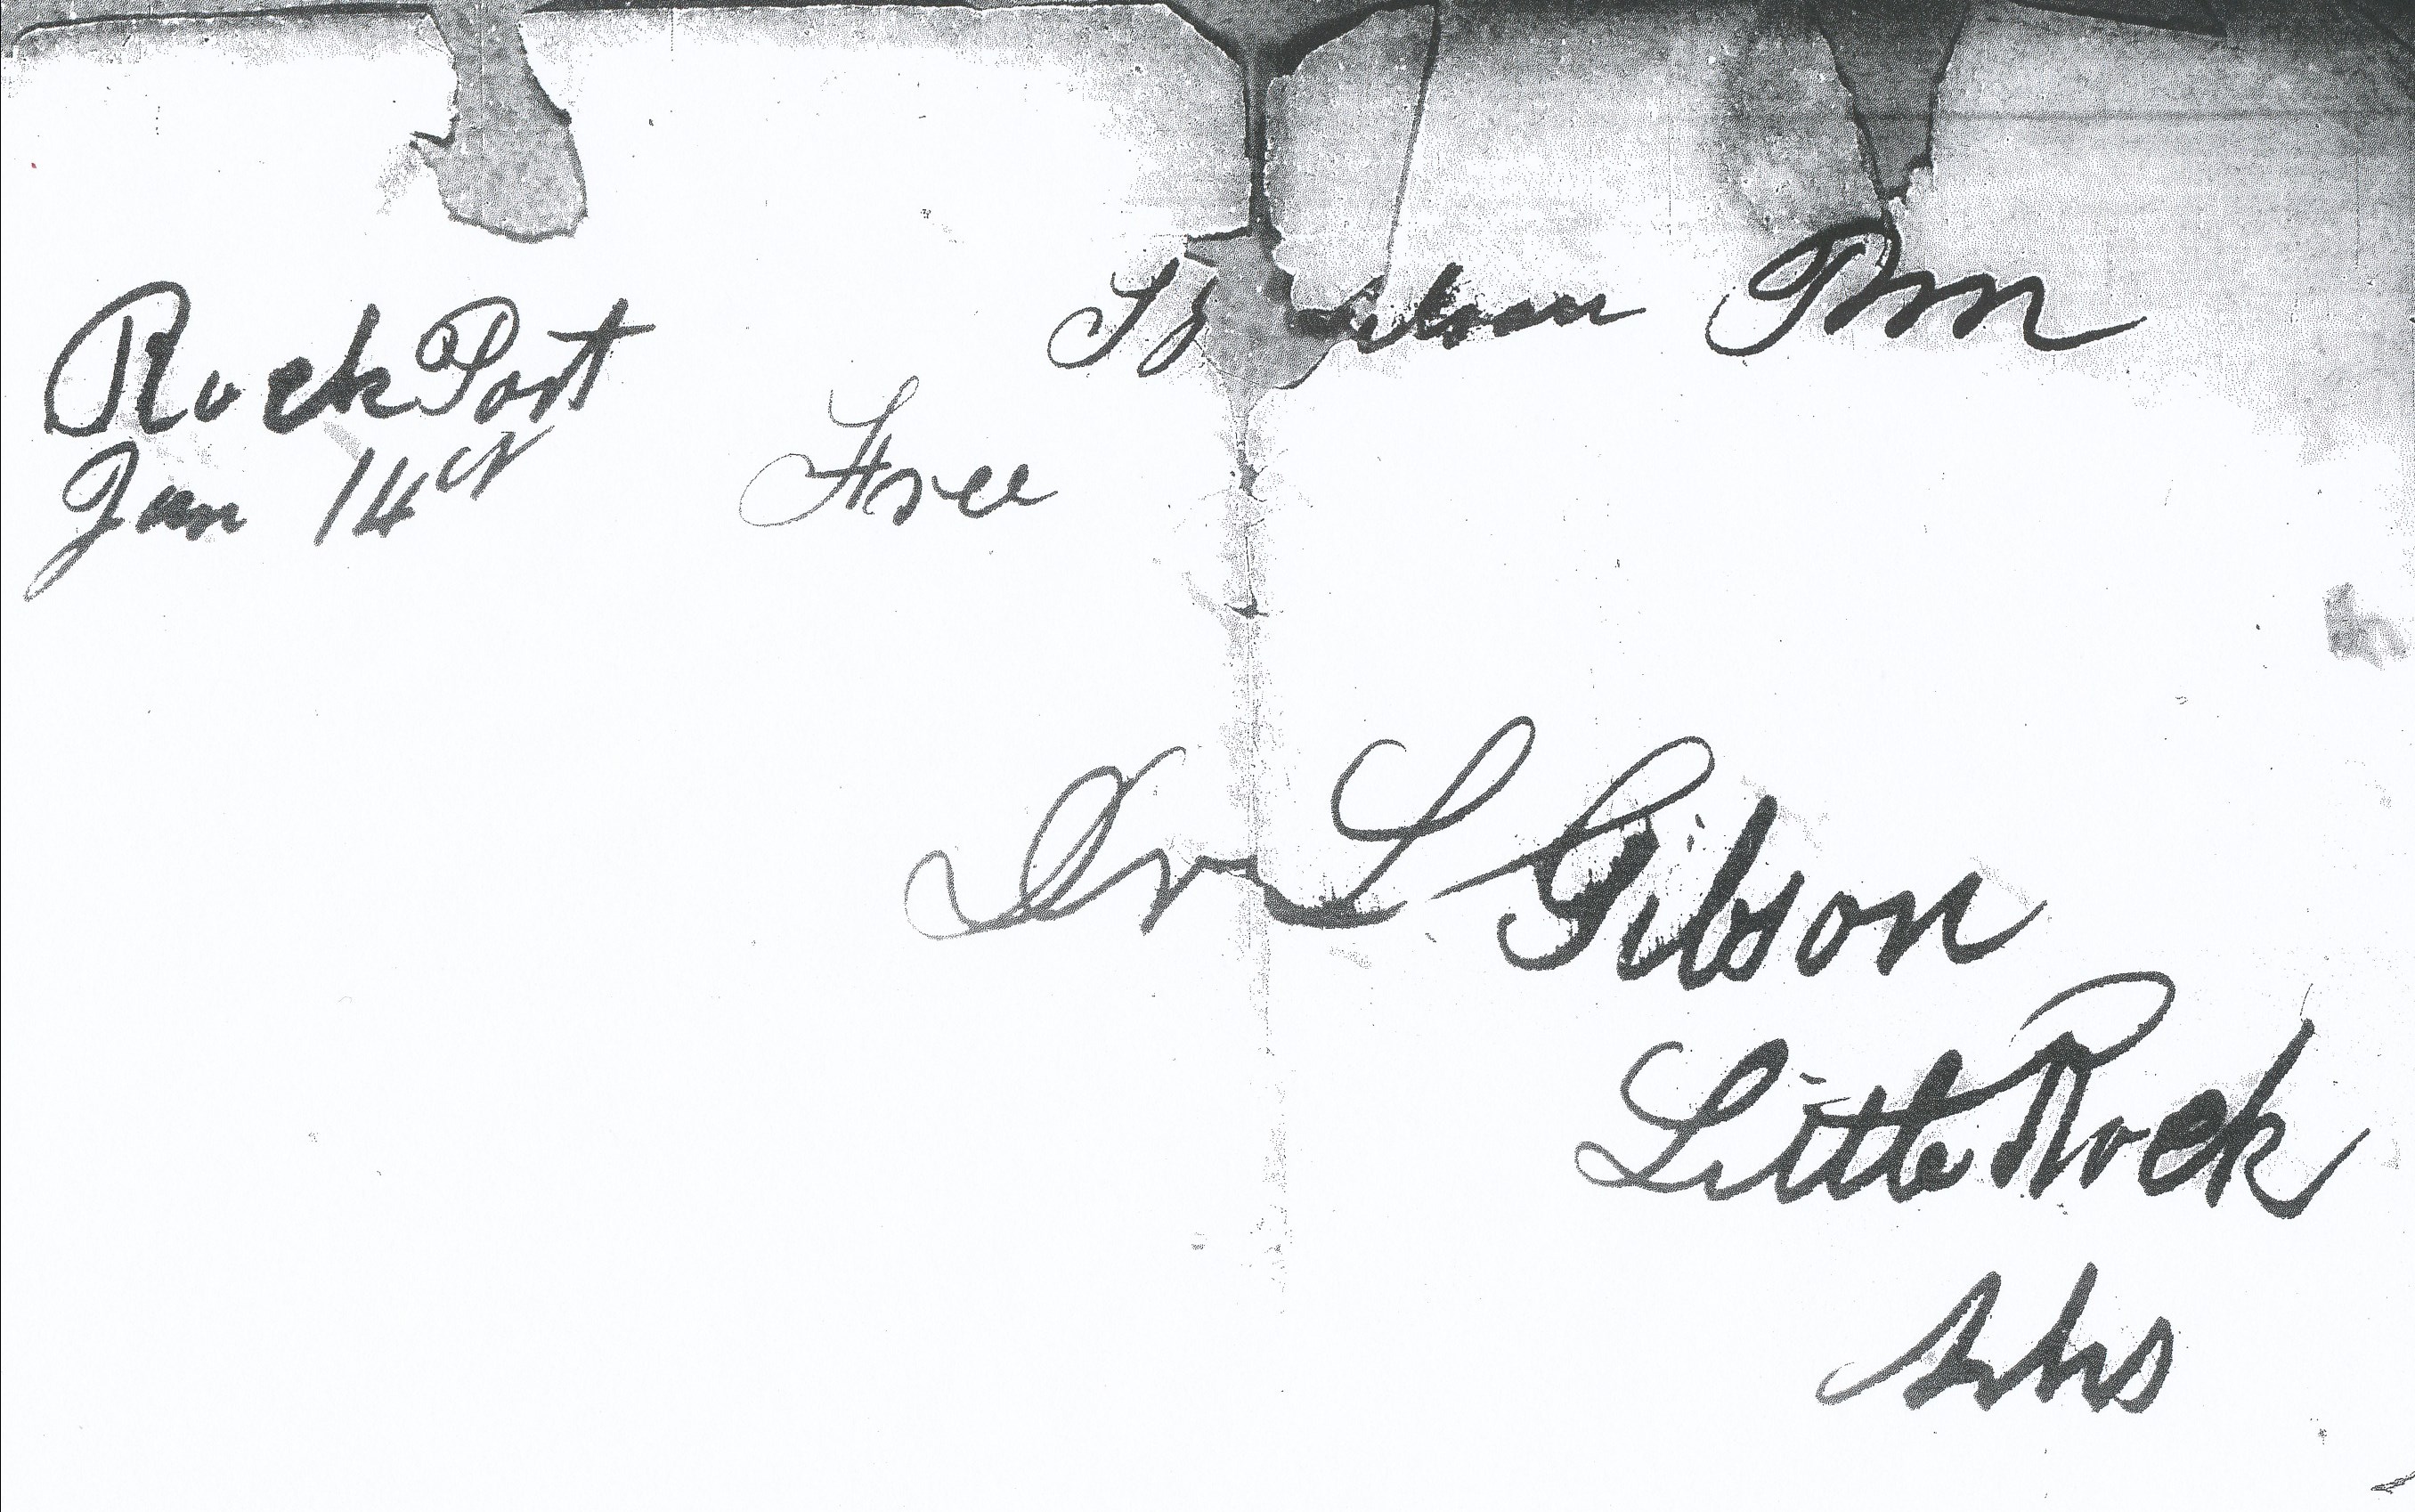 Rock Port
Jan 14th
Free
P m
Dr L Gibson
Little Rock
Arks